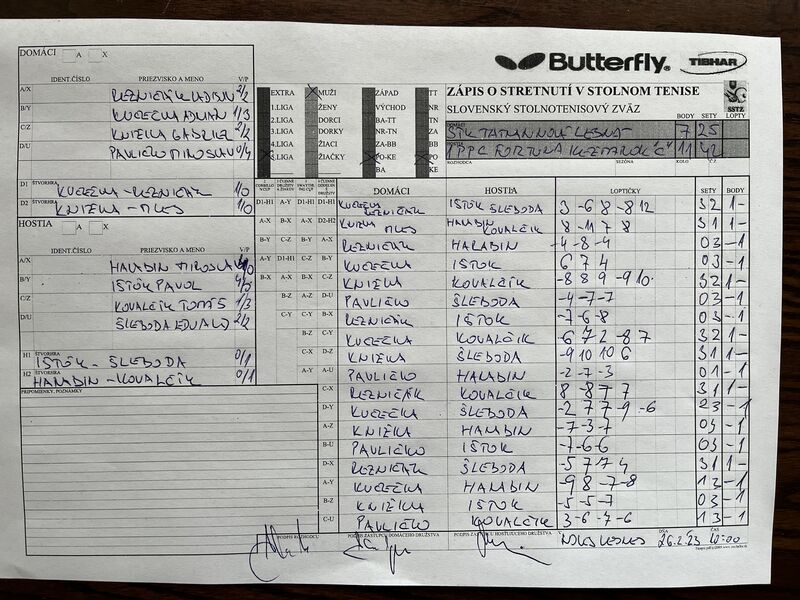 DOMÁCI A X
IDENT.ČÍSLO PRIEZVISKO A MENO V/P
A/X REZNIČÁK LADISLAV 2/2
B/Y KUCEČKA ADRIÁN 1/3
C/Z KNIŽKA GABRIEL 2/2
D/U PAVLIČKO MIROSLAV 0/4
D1 ŠTVORHRA KUCEČKA - REZNIČÁK 1/0
D2 ŠTVORHRA KNIŽKA - 1/0
HOSTIA A X
IDENT.ČÍSLO PRIEZVISKO A MENO V/P
A/X HALABIN MIROSLAV 4/0
B/Y IŠTOK PAVOL 4/0
C/Z KOVALČÍK TOMÁŠ 1/3
D/U ŠLEBODA EDUARD 2/2
H1 ŠTVORHRA IŠTOK - ŠLEBODA 0/1
H2 ŠTVORHRA HALABIN - KOVALČÍK 0/1
PRIPOMIENKY, POZNÁMKY
Butterfly TIBHAR
EXTRA MUŽI ZÁPAD TT
1.LIGA ŽENY VÝCHOD NR
2.LIGA DORCI BA-TT TN
3.LIGA DORKY NR-TN ZA
4.LIGA ŽIACI ZA-BB BB
5.LIGA ŽIAČKY PO-KE PO
BA KE
ZÁPIS O STRETNUTÍ V STOLNOM TENISE
SLOVENSKÝ STOLNOTENISOVÝ ZVÄZ
SSTZ
BODY SETY LOPTY
DOMÁCI STK TATRANNOVÁ LESNÁ 7 25
PPC FORTUNA KEŽMAROK "C" 11 42
SEZÓNA KOLO
DOMÁCI HOSTIA LOPTIČKY SETY BODY
D1-H1 KUCEČKA REZNIČÁK IŠTOK ŠLEBODA 3 -6 8 -8 12 3 2 1 -
D2-H2 KNIŽKA HALABIN KOVALČÍK 8 -11 7 8 3 1 1 -
A-X REZNIČÁK HALABIN -4 -8 -4 0 3 -1
B-Y KUCEČKA IŠTOK 6 7 4 0 3 -1
KNIŽKA KOVALČÍK -8 8 9 -9 10 3 2 1 -
D-U PAVLIČKO ŠLEBODA -4 -7 -7 0 3 -1
B-X REZNIČÁK IŠTOK -7 -6 8 0 3 -1
C-Y KUCEČKA KOVALČÍK 6 7 2 -8 7 3 2 1 -
D-Z KNIŽKA ŠLEBODA -9 10 10 6 3 1 1 -
A-U PAVLIČKO HALABIN -2 -7 -3 0 1 -1
C-X REZNIČÁK KOVALČÍK 8 -8 7 7 3 1 1 -
D-Y KUCEČKA ŠLEBODA -2 7 7 -9 -6 2 3 -1
A-Z KNIŽKA HALABIN -7 -3 -7 0 3 -1
B-U PAVLIČKO IŠTOK -7 -6 -6 0 3 -1
D-X REZNIČÁK ŠLEBODA -5 7 7 4 3 1 1 -
A-Y KUCEČKA HALABIN -9 8 -7 -8 1 3 -1
B-Z KNIŽKA IŠTOK -5 -5 -7 0 3 -1
C-U PAVLIČKO KOVALČÍK 3 -6 -7 -6 1 3 -1
PODPIS ROZHODCU PODPIS ZÁSTUPCU DOMÁCEHO DRUŽSTVA PODPIS ZÁSTUPCU HOSŤUJÚCEHO DRUŽSTVA DŇA 26.2.23 10:00